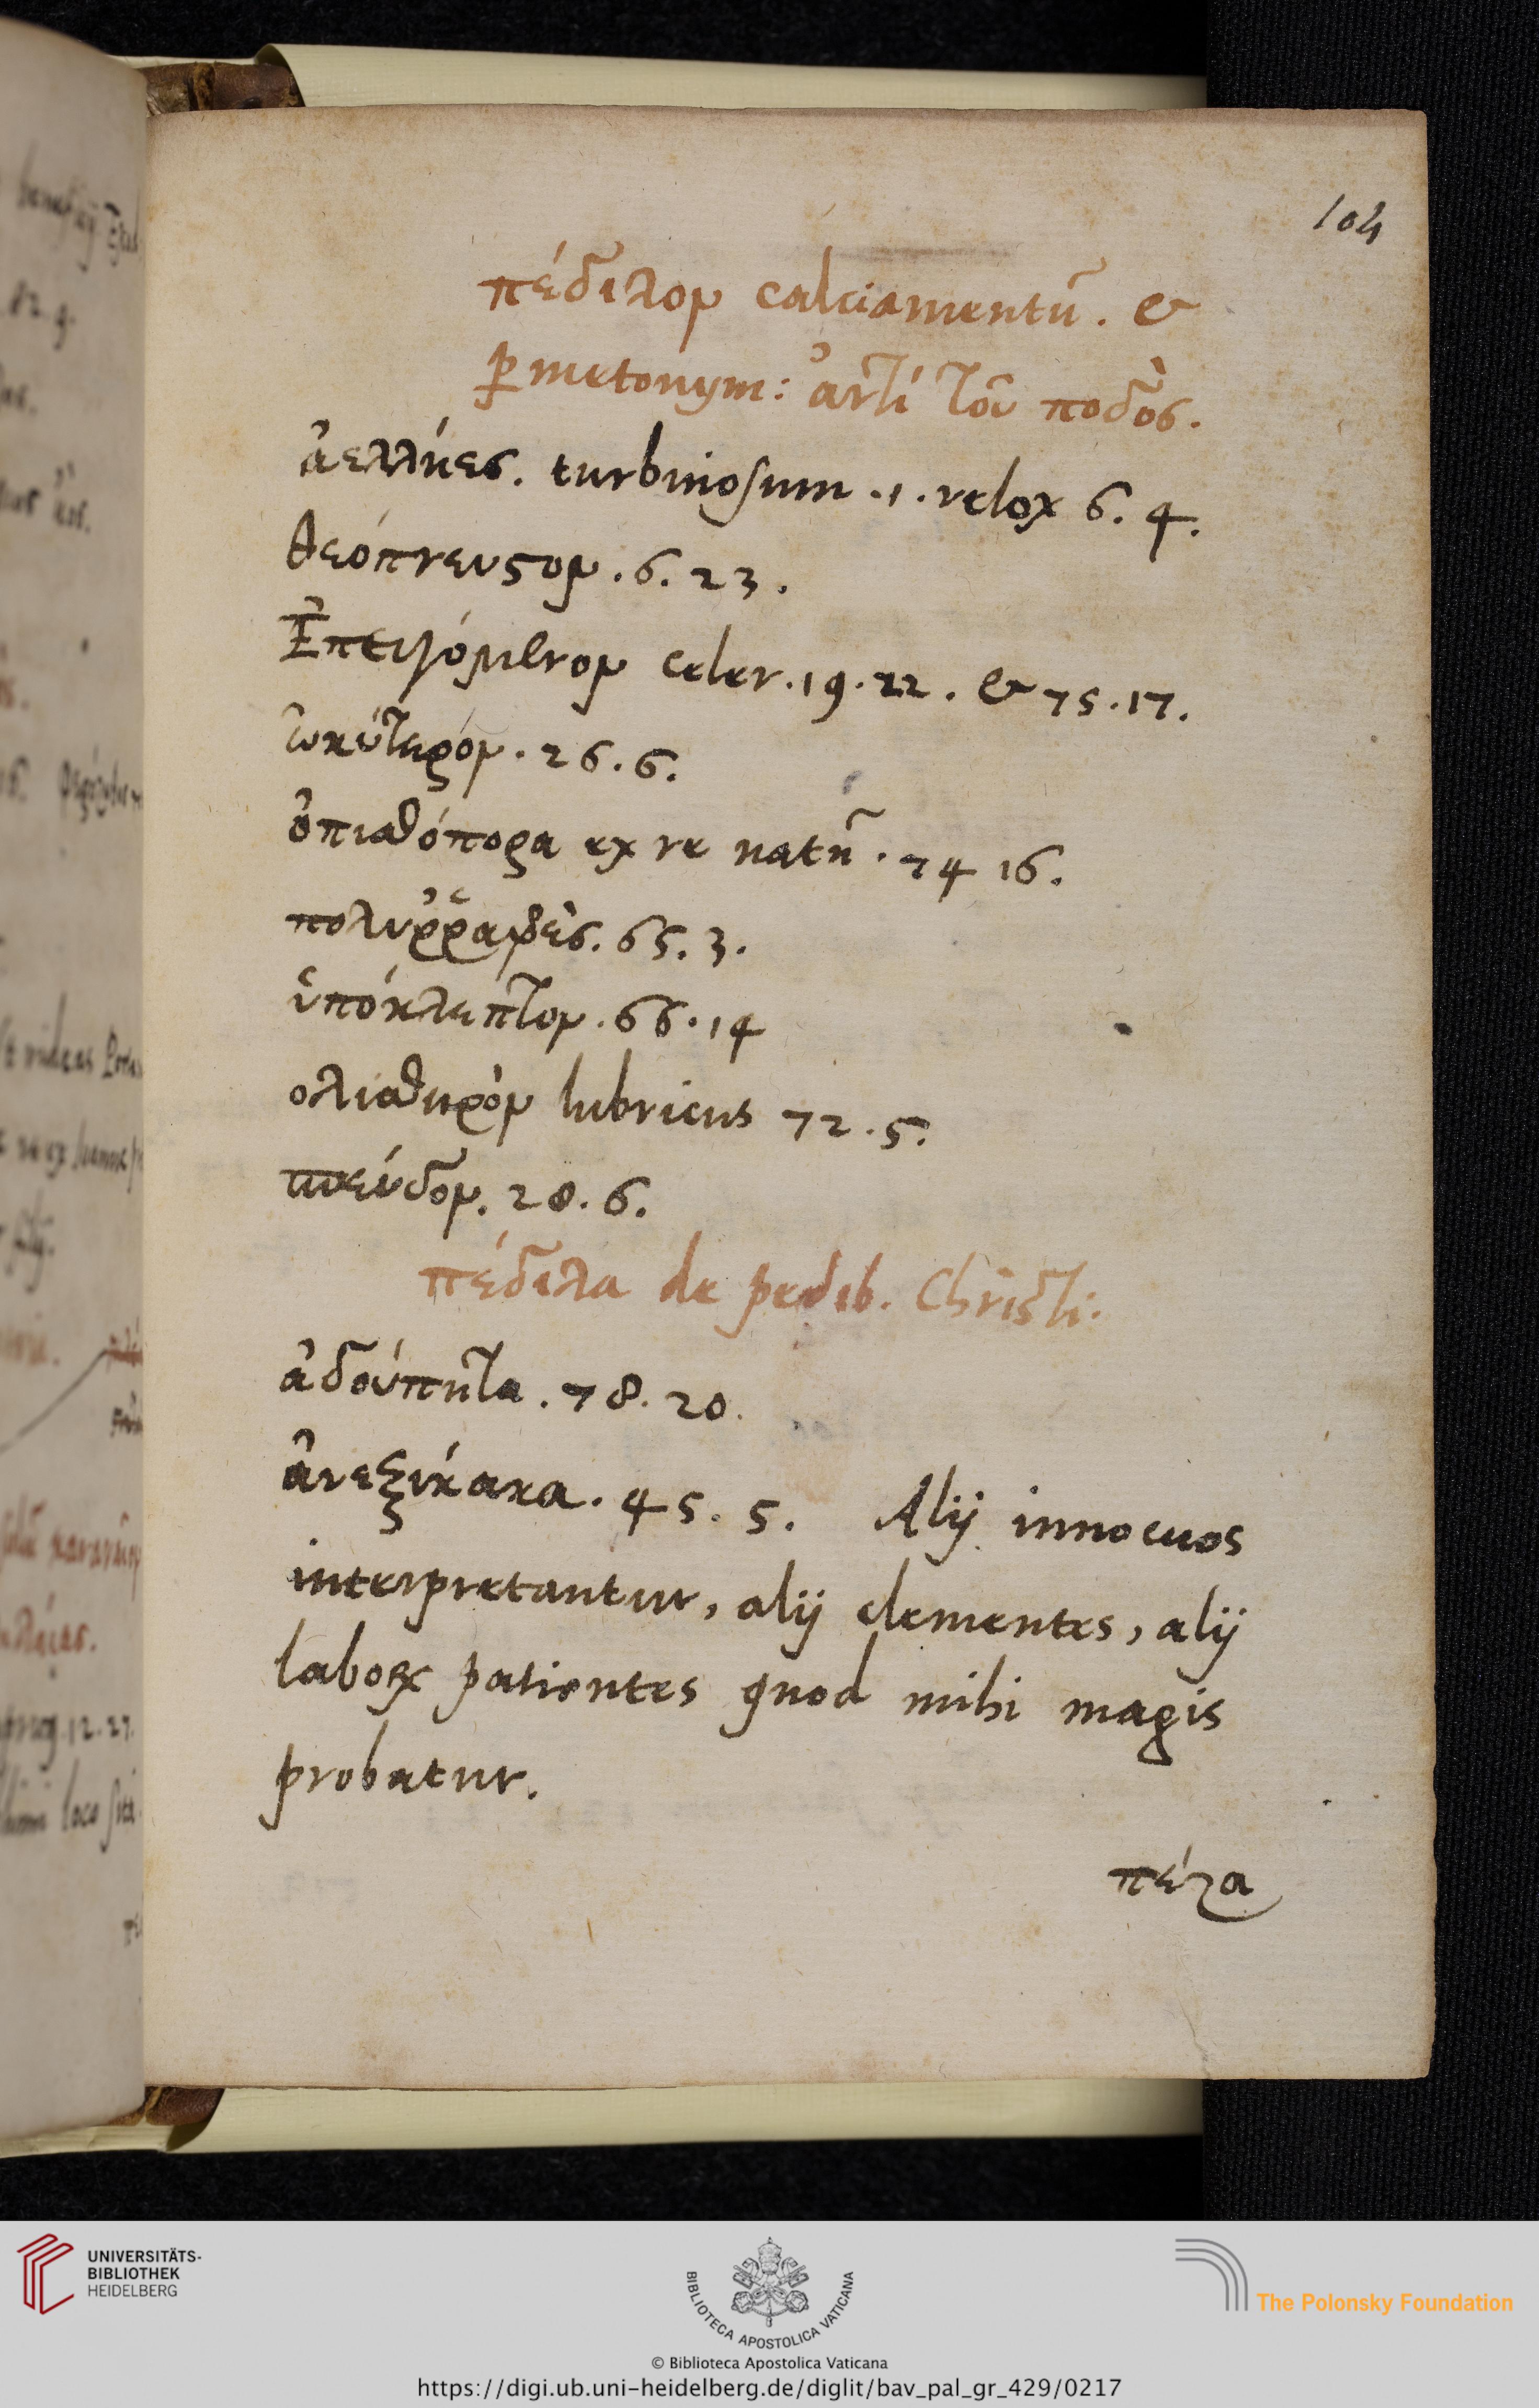 104
πέδιλον calciamentũ. &
ꝑ metonym: ἀντὶ τοῦ ποδὸς.
ἀελλῆες. turbinosum .1. velox 6. 4.
θεόπνευστον. 6. 23.
Ἐπειγόμενον celer. 19. 22. & 75. 17.
ὠκύτερόν. 26. 6.
ὀπισθόπορα ex re natũ. 74 16.
πολυῤῥαφὲς. 65. 3.
ὑπόκλεπτον. 66. 14
ολισθηρὸν lubricus 72. 5.
σπεύδον. 28. 6.
πέδιλα de pedib. Christi.
ἀδούπητα. 78. 20.
ἀνεξίκακα. 45. 5. Alij innocuos
interpretantur, alij clementes, alij
laboꝝ patientes quod mihi magis
probatur.
πέζα
UNIVERSITÄTS-
BIBLIOTHEK
HEIDELBERG
BIBLIOTECA APOSTOLICA VATICANA
The Polonsky Foundation
© Biblioteca Apostolica Vaticana
https://digi.ub.uni-heidelberg.de/diglit/bav_pal_gr_429/0217